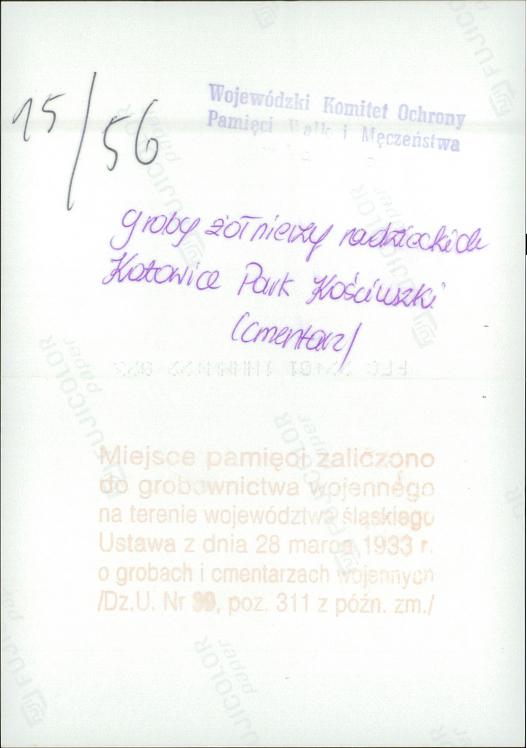 15/56
Wojewódzki Komitet Ochrony
Pamięci Walk i Męczeństwa
groby żołnierzy radzieckich
Katowice Park Kościuszki
(cmentarz)
Miejsce pamięci zaliczono
do grobownictwa wojennego
na terenie województwa śląskiego
Ustawa z dnia 28 marca 1933 r.
o grobach i cmentarzach wojennych
/Dz.U. Nr 39, poz. 311 z późn. zm./
FUJICOLOR paper
FUJICOLOR paper
FUJICOLOR paper
FUJICOLOR paper